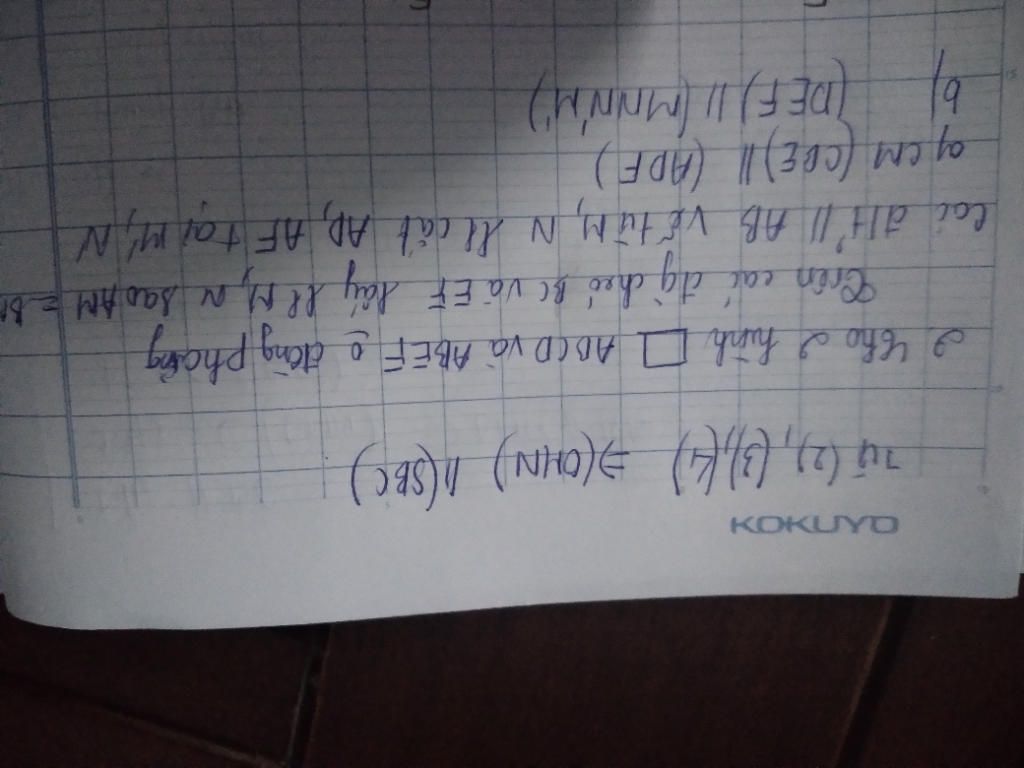 KOKUYO
Từ (2), (3), (4) ⇒ (OMN) // (SBC)
2 Cho 2 hình □ ABCD và ABEF ∉ đồng phẳng
Trên các đg chéo BC và EF lấy M, N sao AM = BN
Các đtt // AB vẽ từ M, N cắt AD, AF tại M', N
a) CM (CBE) // (ADF)
b) (DEF) // (MNN'M')